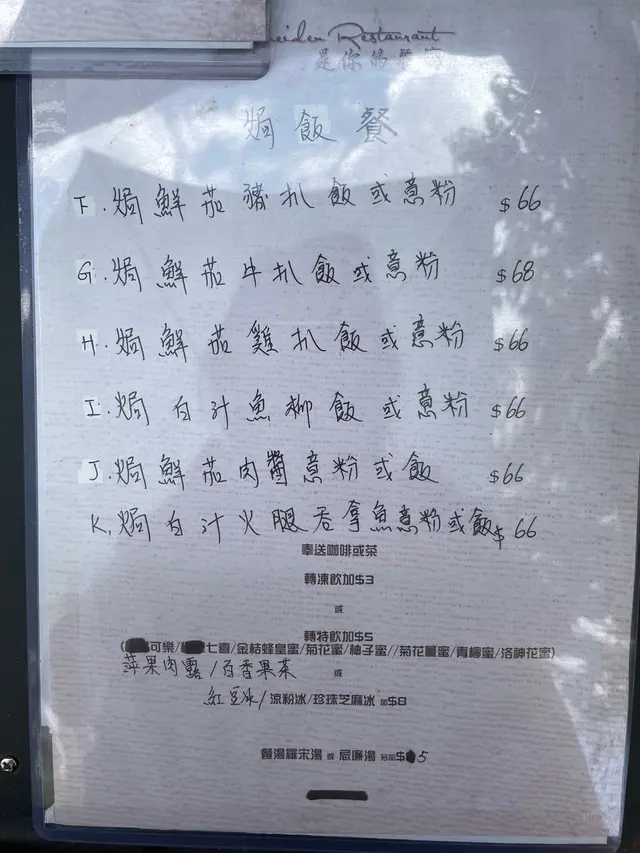 eiden Restaurant
是你的餐廳
焗飯餐
F. 焗鮮茄豬扒飯或意粉 $66
G. 焗鮮茄牛扒飯或意粉 $68
H. 焗鮮茄雞扒飯或意粉 $66
I. 焗白汁魚柳飯或意粉 $66
J. 焗鮮茄肉醬意粉或飯 $66
K. 焗白汁火腿吞拿魚意粉或飯 $66
奉送咖啡或茶
轉凍飲加$3
或
轉特飲加$5
(可樂/七喜/金桔蜂皇蜜/菊花蜜/柚子蜜//菊花蜜/青檸蜜/洛神花蜜)
蘋果肉露/百香果茶 或
紅豆冰/涼粉冰/珍珠芝麻冰 加$8
餐湯羅宋湯 或 忌廉湯 另加$5